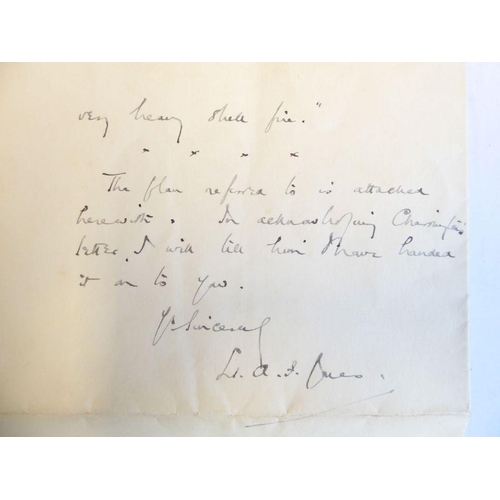 very heavy shell fire."
x x x x
The plan referred to is attached
herewith. In acknowledging Charrington's
letter, I will tell him I have handed
it on to you.
Yrs sincerely